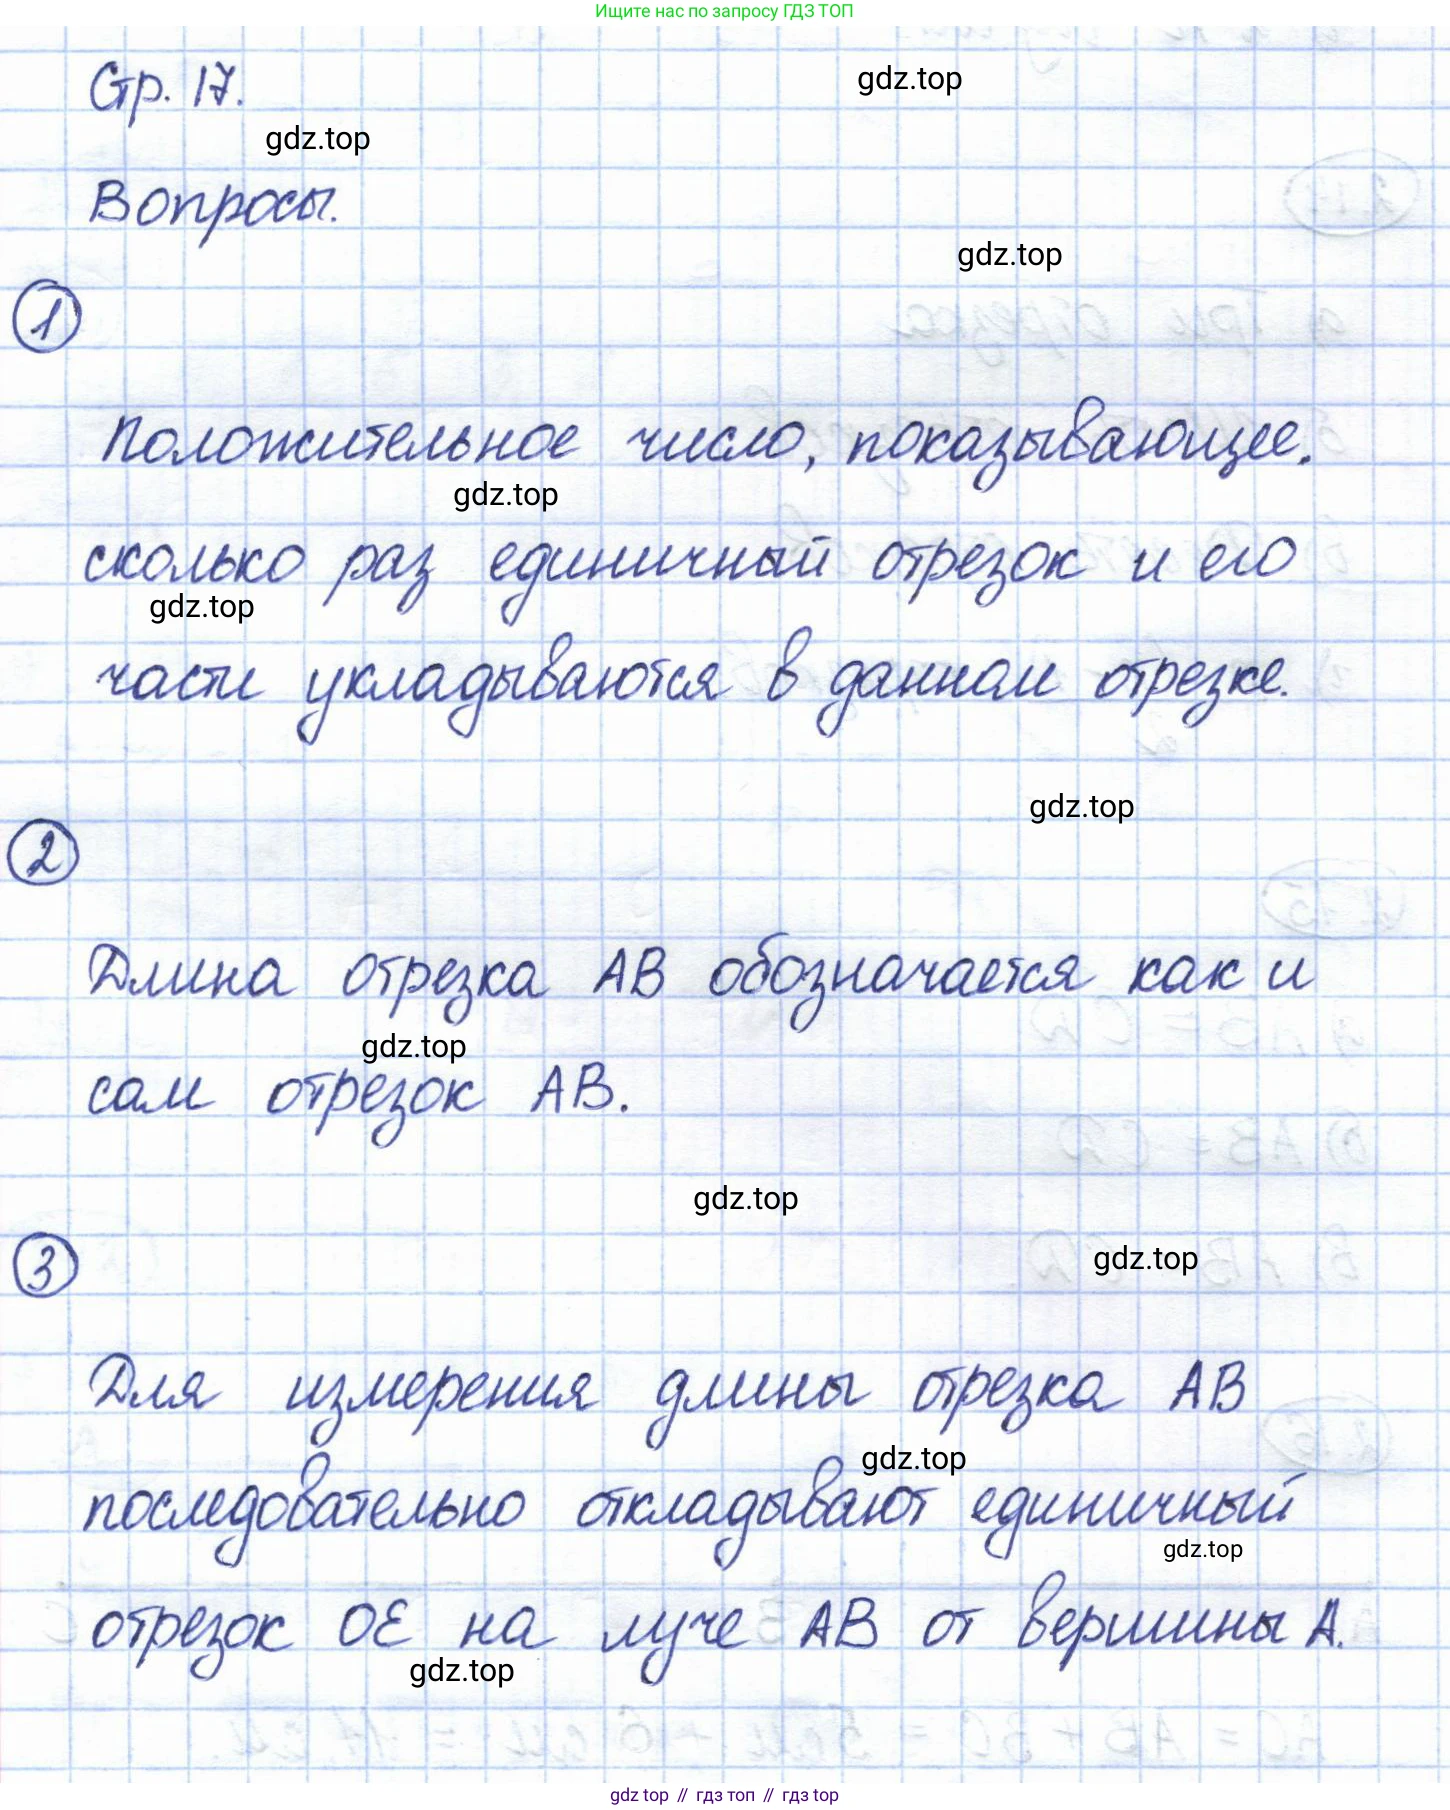 Ищите нас по запросу ГДЗ ТОП
Стр. 17.
gdz.top
gdz.top
Вопросы.
gdz.top
1
Положительное число, показывающее.
gdz.top
сколько раз единичный отрезок и его
gdz.top
части укладываются в данном отрезке.
gdz.top
2
Длина отрезка АВ обозначается как и
gdz.top
сам отрезок АВ.
gdz.top
3
gdz.top
Для измерения длины отрезка АВ
gdz.top
последовательно откладывают единичный
gdz.top
отрезок ОЕ на луче АВ от вершины А.
gdz.top
gdz top // гдз топ // гдз top